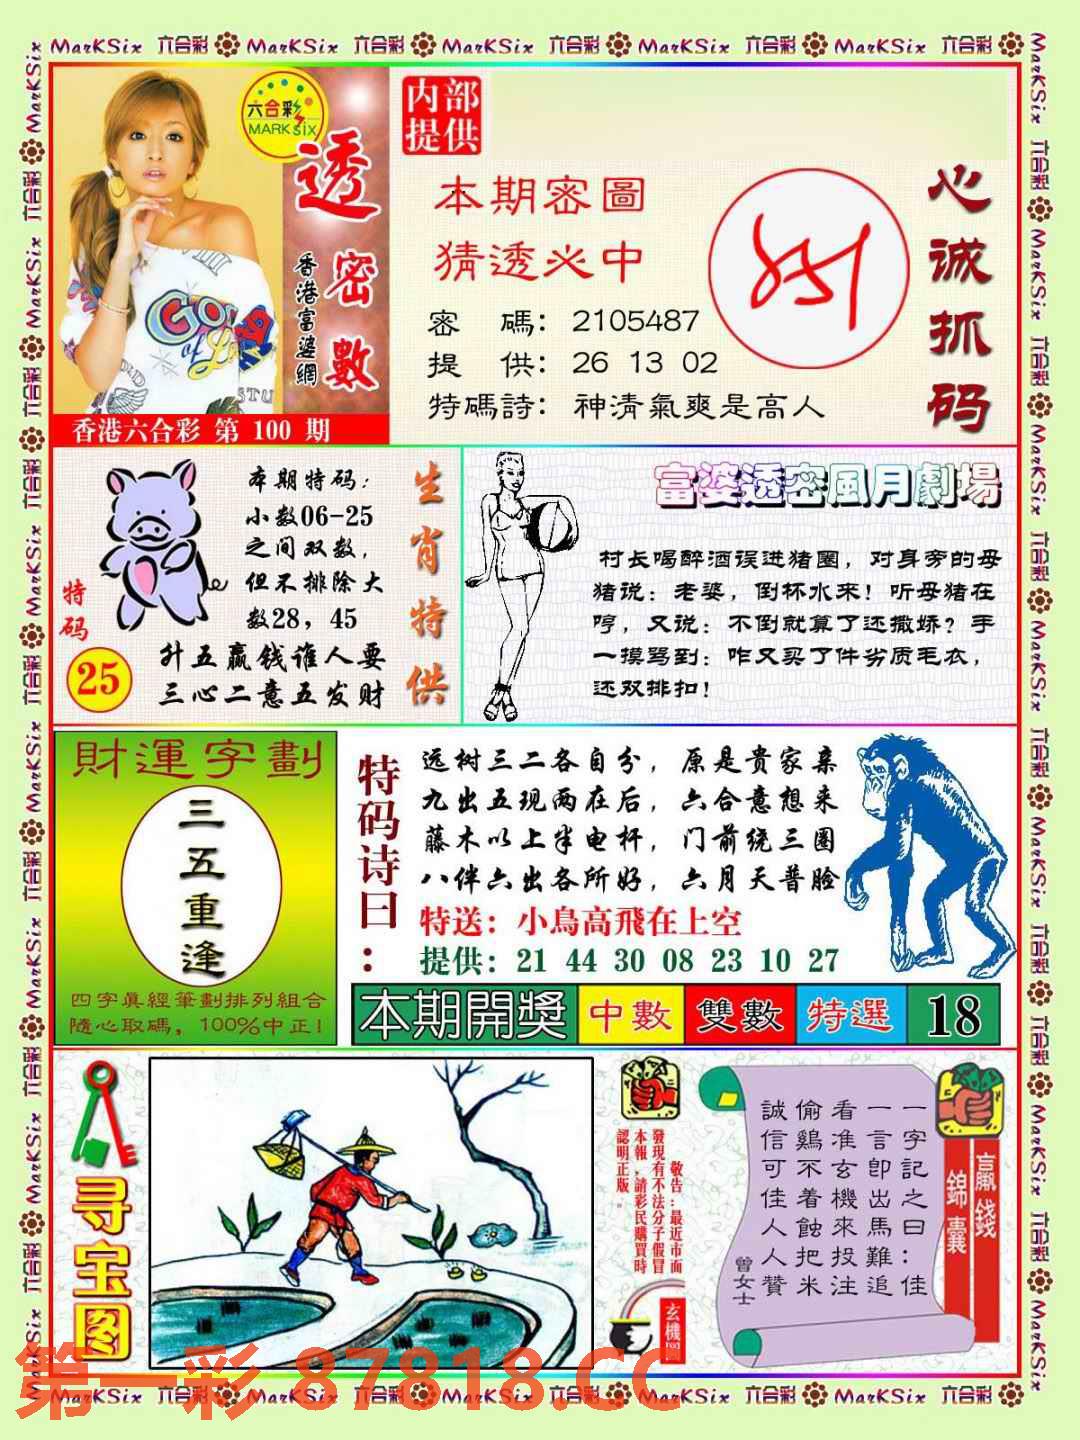 MarKSix 六合彩 MarKSix 六合彩 MarKSix 六合彩 MarKSix 六合彩 MarKSix 六合彩
六合彩
MARK SIX
透密數
香港富婆網
香港六合彩 第 100 期
内部
提供
本期密圖
猜透必中
密 碼: 2105487
提 供: 26 13 02
特碼詩: 神清氣爽是高人
心诚抓码
特码
25
本期特码:
小数06-25
之间双数,
但不排除大
数28, 45
升五赢钱谁人要
三心二意五发财
生肖特供
富婆透密風月劇場
村长喝醉酒误进猪圈，对身旁的母
猪说：老婆，倒杯水来！听母猪在
哼，又说：不倒就算了还撒娇？手
一摸骂到：咋又买了件劣质毛衣，
还双排扣！
財運字劃
三五重逢
四字真經筆劃排列組合
隨心取碼，100%中正！
特码诗曰：
远树三二各自分，原是贵家亲
九出五现两在后，六合意想来
藤木以上半电杆，门前绕三圈
八伴六出各所好，六月天普脸
特送：小鳥高飛在上空
提供：21 44 30 08 23 10 27
本期開獎 中數 雙數 特選 18
寻宝图
敬告：最近市面
發現有不法分子假冒
本報，請彩民購買時
認明正版。
玄機
贏錢
錦囊
一字記之曰：佳
一言卽出馬難追
看准玄機來投注
偷鷄不着蝕把米
誠信可佳人人贊
曾女士
第一彩 87818.CC
MarKSix 六合彩 MarKSix 六合彩 MarKSix 六合彩 MarKSix 六合彩 MarKSix 六合彩